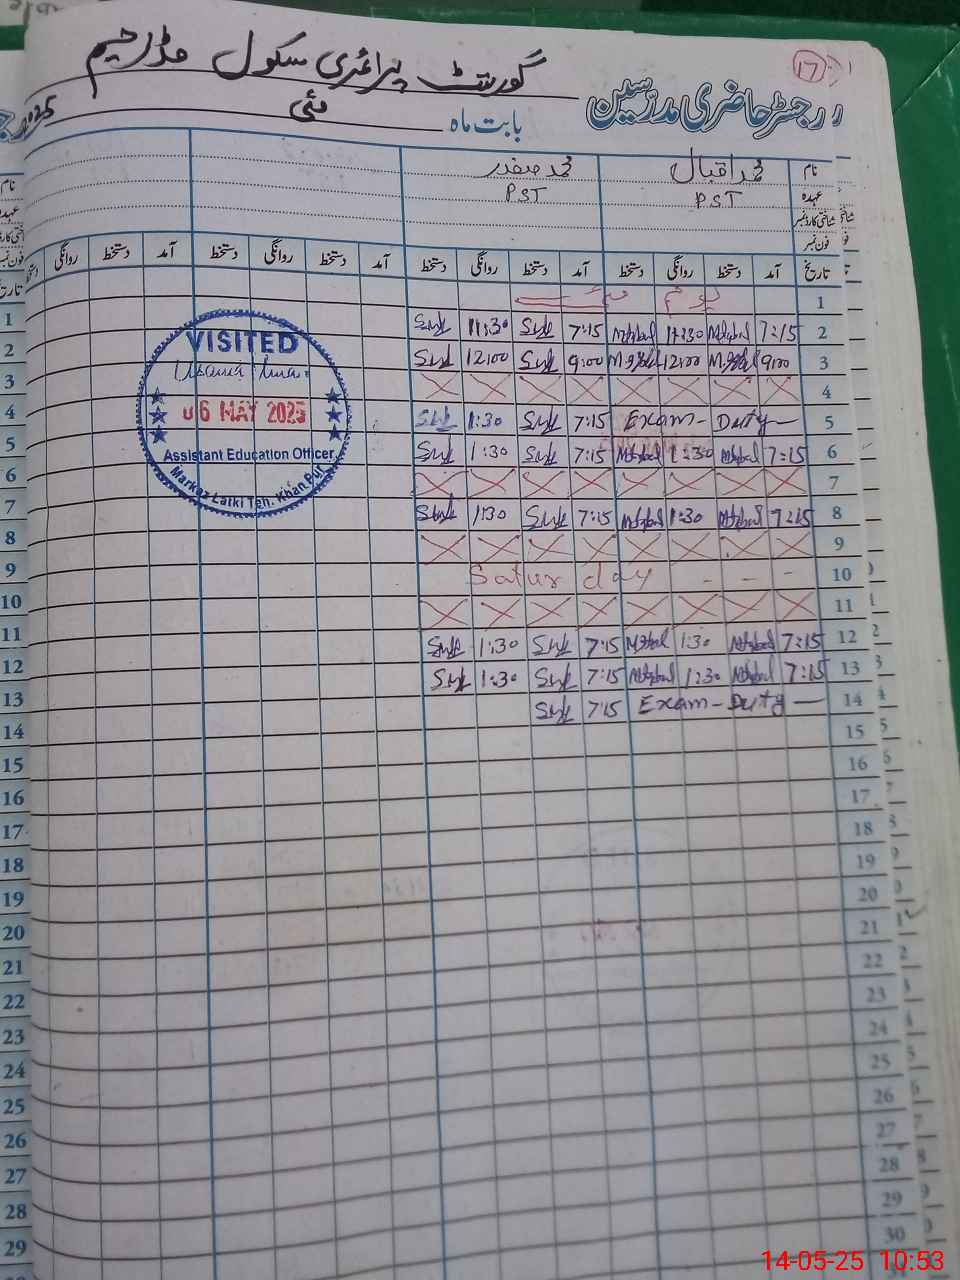 17
گورنمنٹ پرائمری سکول مڈ رحیم
رجسٹر حاضری مدرسین
بابت ماہ مئی 2025
نام محمد اقبال محمد صفدر
عہدہ PST PST
شناختی کارڈ نمبر
فون نمبر
تاریخ آمد دستخط روانگی دستخط آمد دستخط روانگی دستخط آمد دستخط روانگی دستخط آمد دستخط روانگی
1 یوم مئی
2 7:15 11:30 7:15 11:30
3 9:00 12:00 9:00 12:00
4
5 Exam - Duty - 7:15 1:30
6 7:15 1:30 7:15 1:30
7
8 7:15 1:30 7:15 1:30
9
10 Saturday - - -
11
12 7:15 1:30 7:15 1:30
13 7:15 1:30 7:15 1:30
14 Exam - Duty - 7:15
15
16
17
18
19
20
21
22
23
24
25
26
27
28
29
30
VISITED
06 MAY 2025
Assistant Education Officer
Markaz Larki Teh. Khan Pur
1
2
3
4
5
6
7
8
9
10
11
12
13
14
15
16
17
18
19
20
21
22
23
24
25
26
27
28
29
14-05-25 10:53